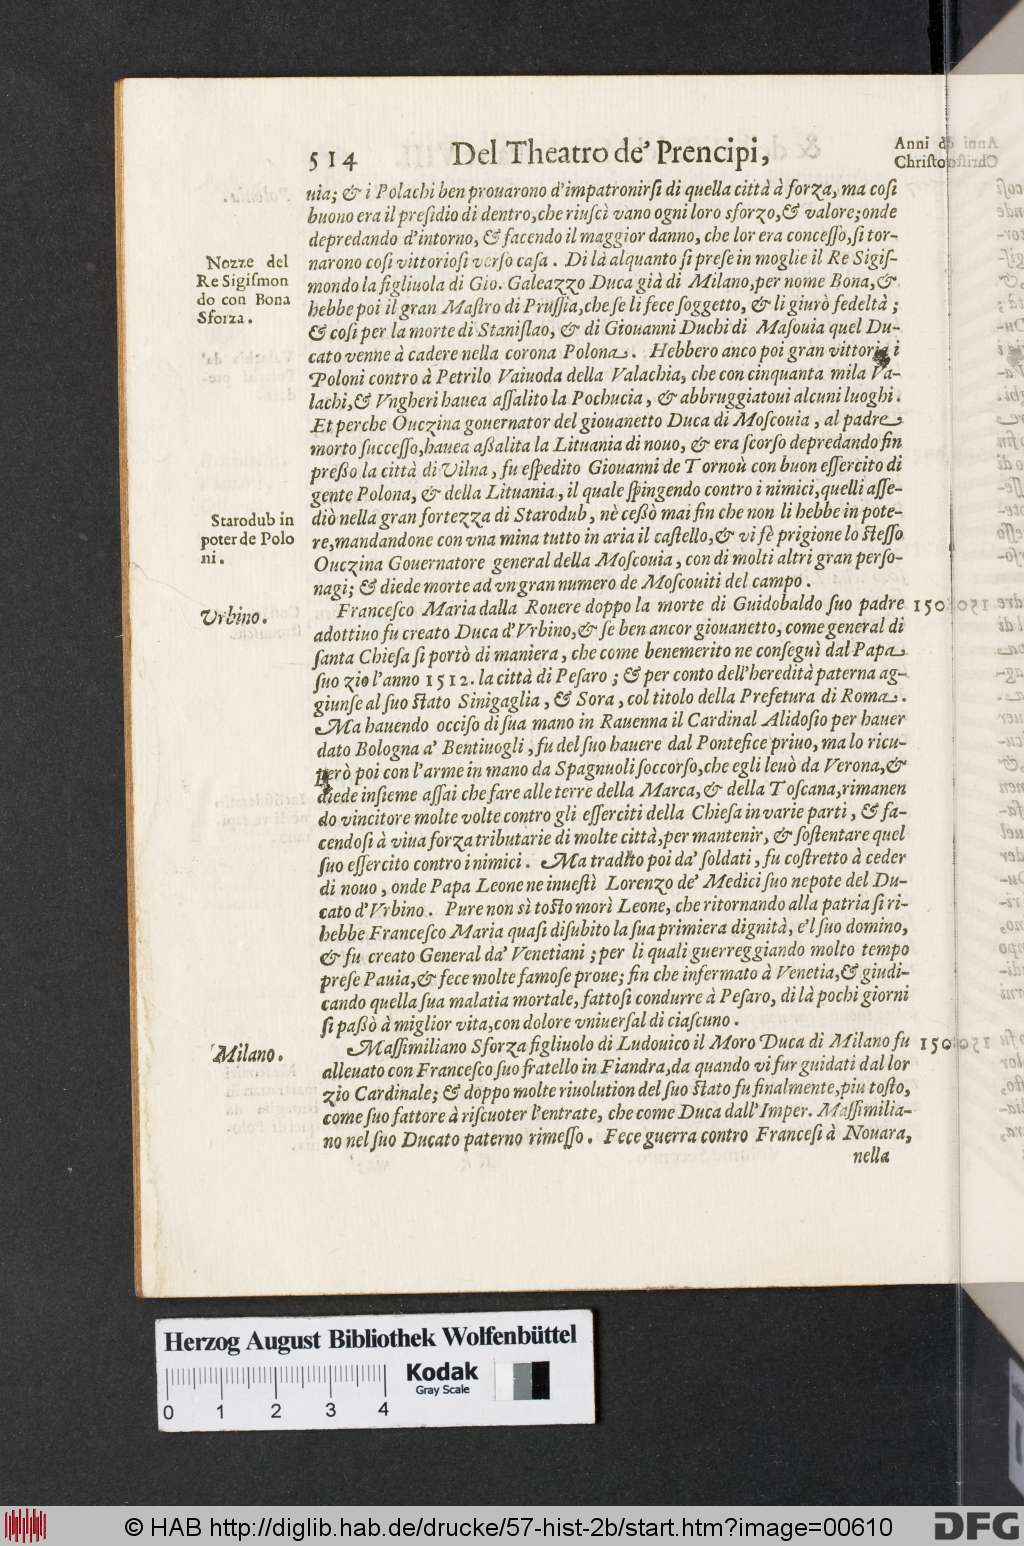 514 Del Theatro de' Prencipi,
Anni d
Christo
uia; & i Polachi ben prouarono d'impatronirsi di quella città à forza, ma così
buono era il presidio di dentro, che riuscì vano ogni loro sforzo, & valore; onde
depredando d'intorno, & facendo il maggior danno, che lor era concesso, si tor-
narono così vittoriosi verso casa. Di là alquanto si prese in moglie il Re Sigis-
mondo la figliuola di Gio. Galeazzo Duca già di Milano, per nome Bona, &
hebbe poi il gran Mastro di Prussia, che se li fece soggetto, & li giurò fedeltà;
& così per la morte di Stanislao, & di Giouanni Duchi di Masouia quel Du-
cato venne à cadere nella corona Polona. Hebbero anco poi gran vittoria i
Poloni contro à Petrilo Vaiuoda della Valachia, che con cinquanta mila Va-
lachi, & Vngheri hauea assalito la Pochucia, & abbruggiatoui alcuni luoghi.
Et perche Ouczina gouernator del giouanetto Duca di Moscouia, al padre
morto successo, hauea assalita la Lituania di nouo, & era scorso depredando fin
presso la città di Vilna, fu espedito Giouanni de Tornoù con buon essercito di
gente Polona, & della Lituania, il quale spingendo contro i nimici, quelli asse-
diò nella gran fortezza di Starodub, nè cessò mai fin che non li hebbe in pote-
re, mandandone con vna mina tutto in aria il castello, & vi fè prigione lo stesso
Ouczina Gouernatore general della Moscouia, con di molti altri gran perso-
nagi; & diede morte ad vn gran numero de Moscouiti del campo.
Nozze del
Re Sigismon
do con Bona
Sforza.
Starodub in
poter de Polo
ni.
Vrbino.
Francesco Maria dalla Rouere doppo la morte di Guidobaldo suo padre 150
adottiuo fu creato Duca d'Vrbino, & se ben ancor giouanetto, come general di
santa Chiesa si portò di maniera, che come benemerito ne conseguì dal Papa
suo zio l'anno 1512. la città di Pesaro; & per conto dell'heredità paterna ag-
giunse al suo stato Sinigaglia, & Sora, col titolo della Prefetura di Roma.
Ma hauendo occiso di sua mano in Rauenna il Cardinal Alidosio per hauer
dato Bologna a' Bentiuogli, fu del suo hauere dal Pontefice priuo, ma lo ricu-
però poi con l'arme in mano da Spagnuoli soccorso, che egli leuò da Verona, &
diede insieme assai che fare alle terre della Marca, & della Toscana, rimanen
do vincitore molte volte contro gli esserciti della Chiesa in varie parti, & fa-
cendosi à viua forza tributarie di molte città, per mantenir, & sostentare quel
suo essercito contro i nimici. Ma tradito poi da' soldati, fu costretto à ceder
di nouo, onde Papa Leone ne inuestì Lorenzo de' Medici suo nepote del Du-
cato d'Vrbino. Pure non sì tosto morì Leone, che ritornando alla patria si ri-
hebbe Francesco Maria quasi di subito la sua primiera dignità, e'l suo domino,
& fu creato General da' Venetiani; per li quali guerreggiando molto tempo
prese Pauia, & fece molte famose proue; fin che infermato à Venetia, & giudi-
cando quella sua malatia mortale, fattosi condurre à Pesaro, di là pochi giorni
si passò à miglior vita, con dolore vniuersal di ciascuno.
Milano.
Massimiliano Sforza figliuolo di Ludouico il Moro Duca di Milano fu 150
alleuato con Francesco suo fratello in Fiandra, da quando vi fur guidati dal lor
zio Cardinale; & doppo molte riuolution del suo stato fu finalmente, piu tosto,
come suo fattore à riscuoter l'entrate, che come Duca dall'Imper. Massimilia-
no nel suo Ducato paterno rimesso. Fece guerra contro Francesi à Nouara,
nella
Herzog August Bibliothek Wolfenbüttel
Kodak
Gray Scale
0 1 2 3 4
© HAB http://diglib.hab.de/drucke/57-hist-2b/start.htm?image=00610
DFG